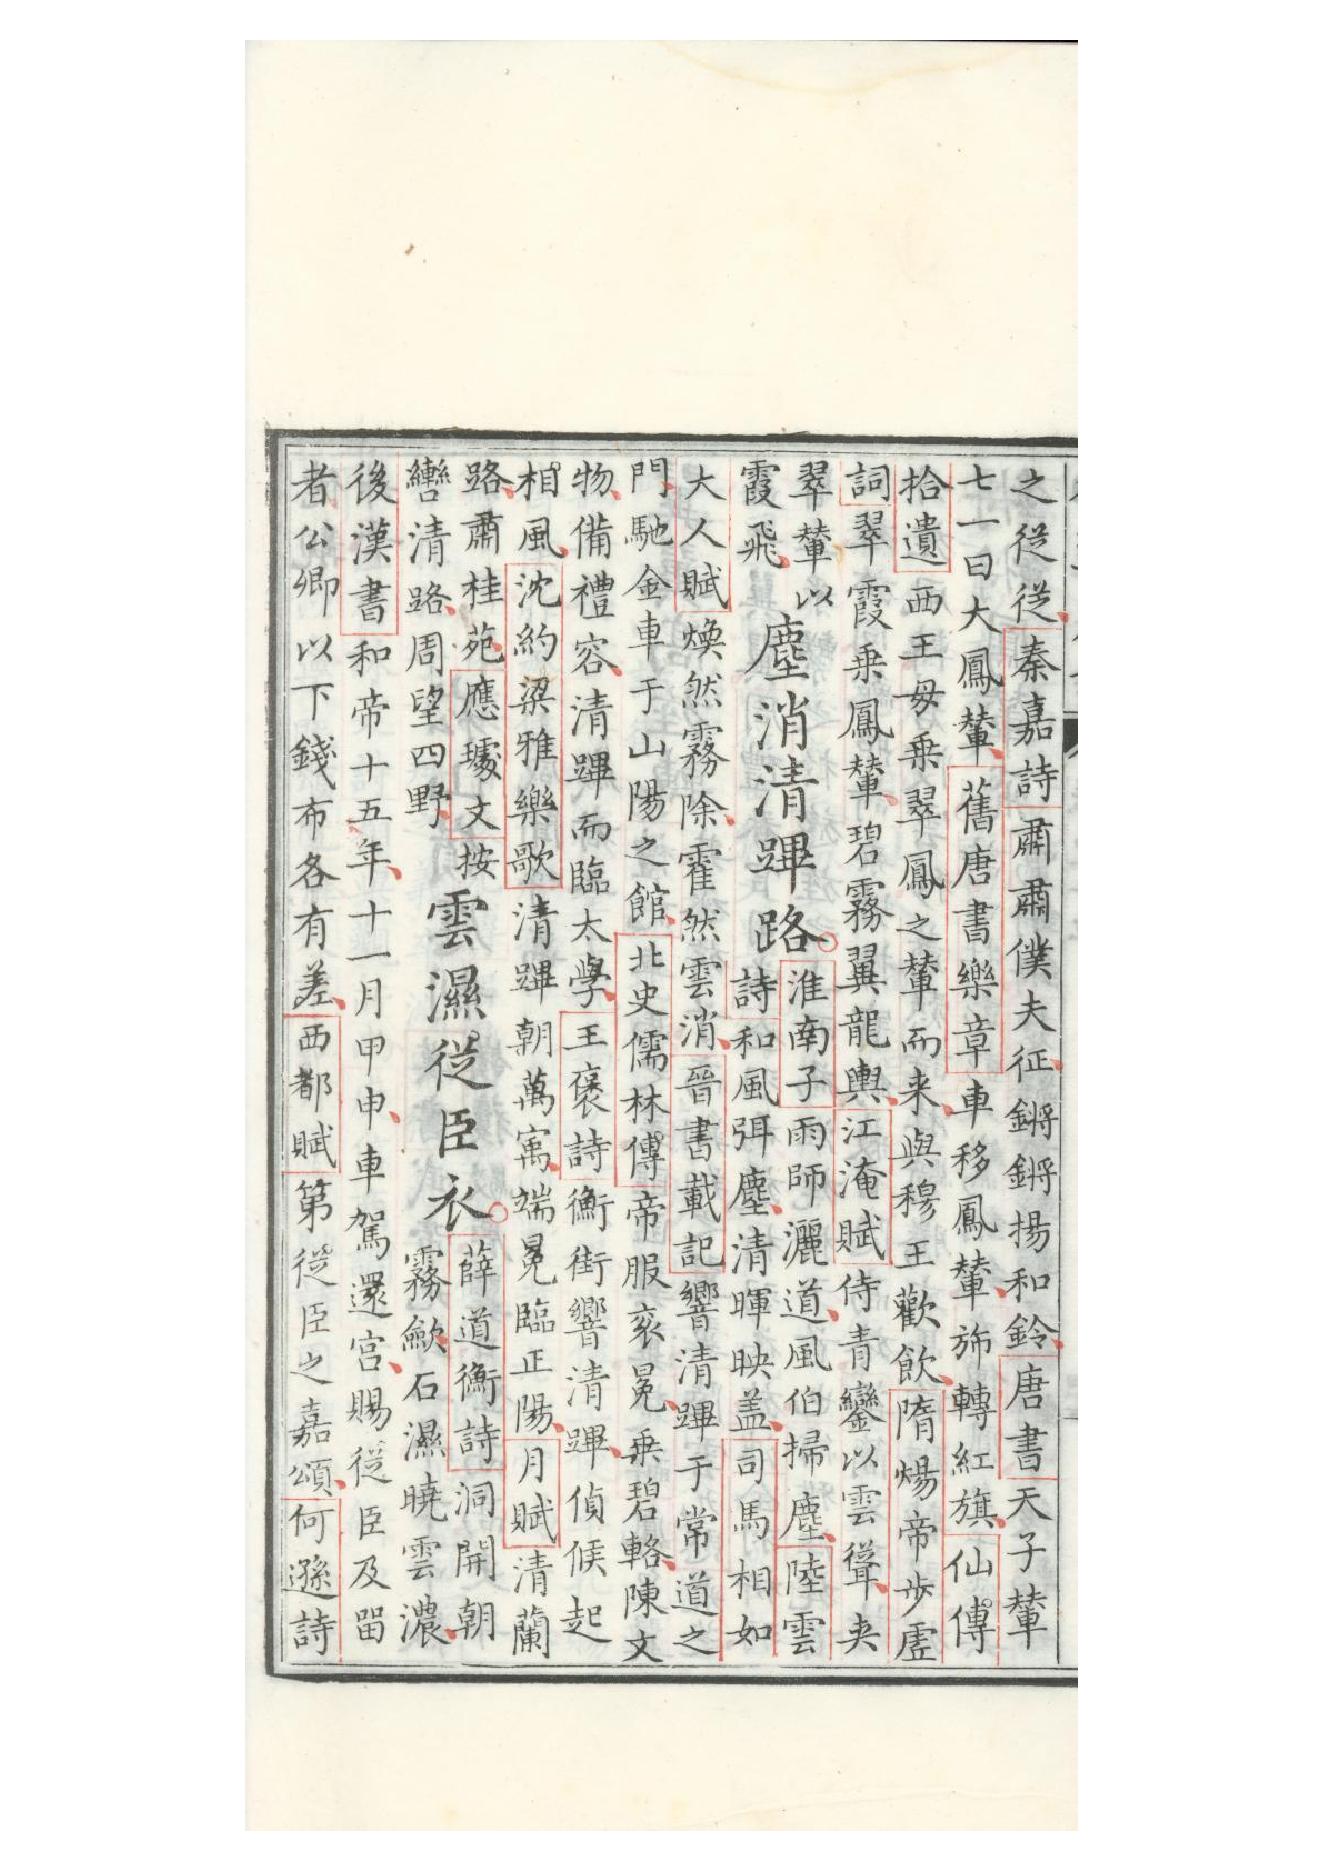 之從從秦嘉詩肅肅僕夫征鏘鏘揚和鈴唐書天子輦
七一曰大鳳輦舊唐書樂章車移鳳輦旆轉紅旗仙傳
拾遺西王毋乗翠鳳之輦而来與穆王歡飲隋煬帝步虛
詞翠霞乗鳳輦碧霧翼龍輿江淹賦侍青鑾以雲聳夹
翠輦以
霞飛
塵消清蹕路
淮南子雨師灑道風伯掃塵陸雲
詩和風弭塵清暉映盖司馬相如
大人賦煥然霧除霍然雲消晉書載記響清蹕于常道之
門馳金車于山陽之館北史儒林傳帝服衮冕乗碧輅陳文
物備禮容清蹕而臨太學王褒詩衡街響清蹕偵候起
相風沈約梁雅樂歌清蹕朝萬㝢端冕臨正陽月賦清蘭
路肅桂苑應璩文按
轡清路周望四野
雲濕從臣衣
薛道衡詩洞開朝
霧歛石濕曉雲濃
後漢書和帝十五年十一月甲申車駕還宮賜從臣及留
者公卿以下錢布各有差西都賦第從臣之嘉頌何遜詩